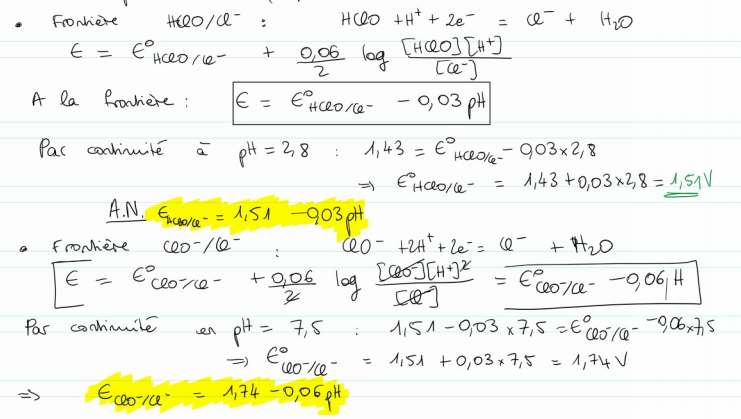 • Frontière HClO/Cl⁻ : HClO + H⁺ + 2e⁻ = Cl⁻ + H₂O
E = E°HClO/Cl⁻ + 0,06/2 log [HClO][H⁺]/[Cl⁻]
A la frontière : E = E°HClO/Cl⁻ - 0,03 pH
Par continuité à pH = 2,8 : 1,43 = E°HClO/Cl⁻ - 0,03×2,8
⇒ E°HClO/Cl⁻ = 1,43 + 0,03×2,8 = 1,51 V
A.N. EHClO/Cl⁻ = 1,51 - 0,03 pH
• Frontière ClO⁻/Cl⁻ : ClO⁻ + 2H⁺ + 2e⁻ = Cl⁻ + H₂O
E = E°ClO⁻/Cl⁻ + 0,06/2 log [ClO⁻][H⁺]²/[Cl⁻] = E°ClO⁻/Cl⁻ - 0,06pH
Par continuité en pH = 7,5 : 1,51 - 0,03×7,5 = E°ClO⁻/Cl⁻ - 0,06×7,5
⇒ E°ClO⁻/Cl⁻ = 1,51 + 0,03×7,5 = 1,74 V
⇒ EClO⁻/Cl⁻ = 1,74 - 0,06 pH